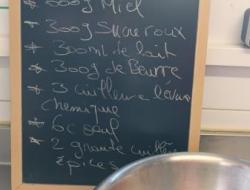 * 300g Sucre roux
* 300ml de lait
* 300g de Beurre
* 3 cuillere levure
chimique
* 6 œuf
* 2 grande cuillère
épices